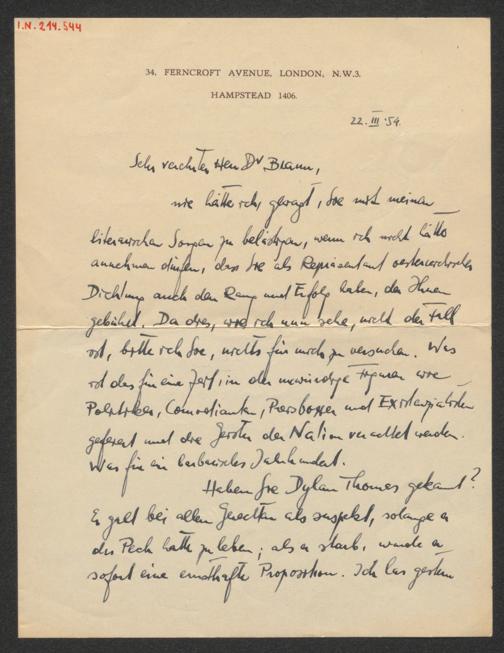 I.N. 214.544
34, FERNCROFT AVENUE, LONDON, N.W.3.
HAMPSTEAD 1406.
22. III '54.
Sehr verehrter Herr Dr Braun,
nie hätte ich gewagt, Sie mit meinen
literarischen Sorgen zu belästigen, wenn ich nicht hätte
annehmen dürfen, dass Sie als Repräsentant oesterreichischer
Dichtung auch den Rang und Erfolg haben, der Ihnen
gebührt. Da dies, wie ich nun sehe, nicht der Fall
ist, bitte ich Sie, nichts für mich zu versuchen. Was
ist das für eine Zeit, in der unwürdige Figuren wie
Politiker, Comedianten, Preisboxer und Existenzialisten
gefeiert und die Geister der Nation verachtet werden.
Was für ein barbarisches Jahrhundert.
Haben Sie Dylan Thomas gekannt?
Er galt bei allen Gerechten als suspekt, solange er
das Pech hatte zu leben; als er starb, wurde er
sofort eine ernsthafte Proposition. Ich las gestern